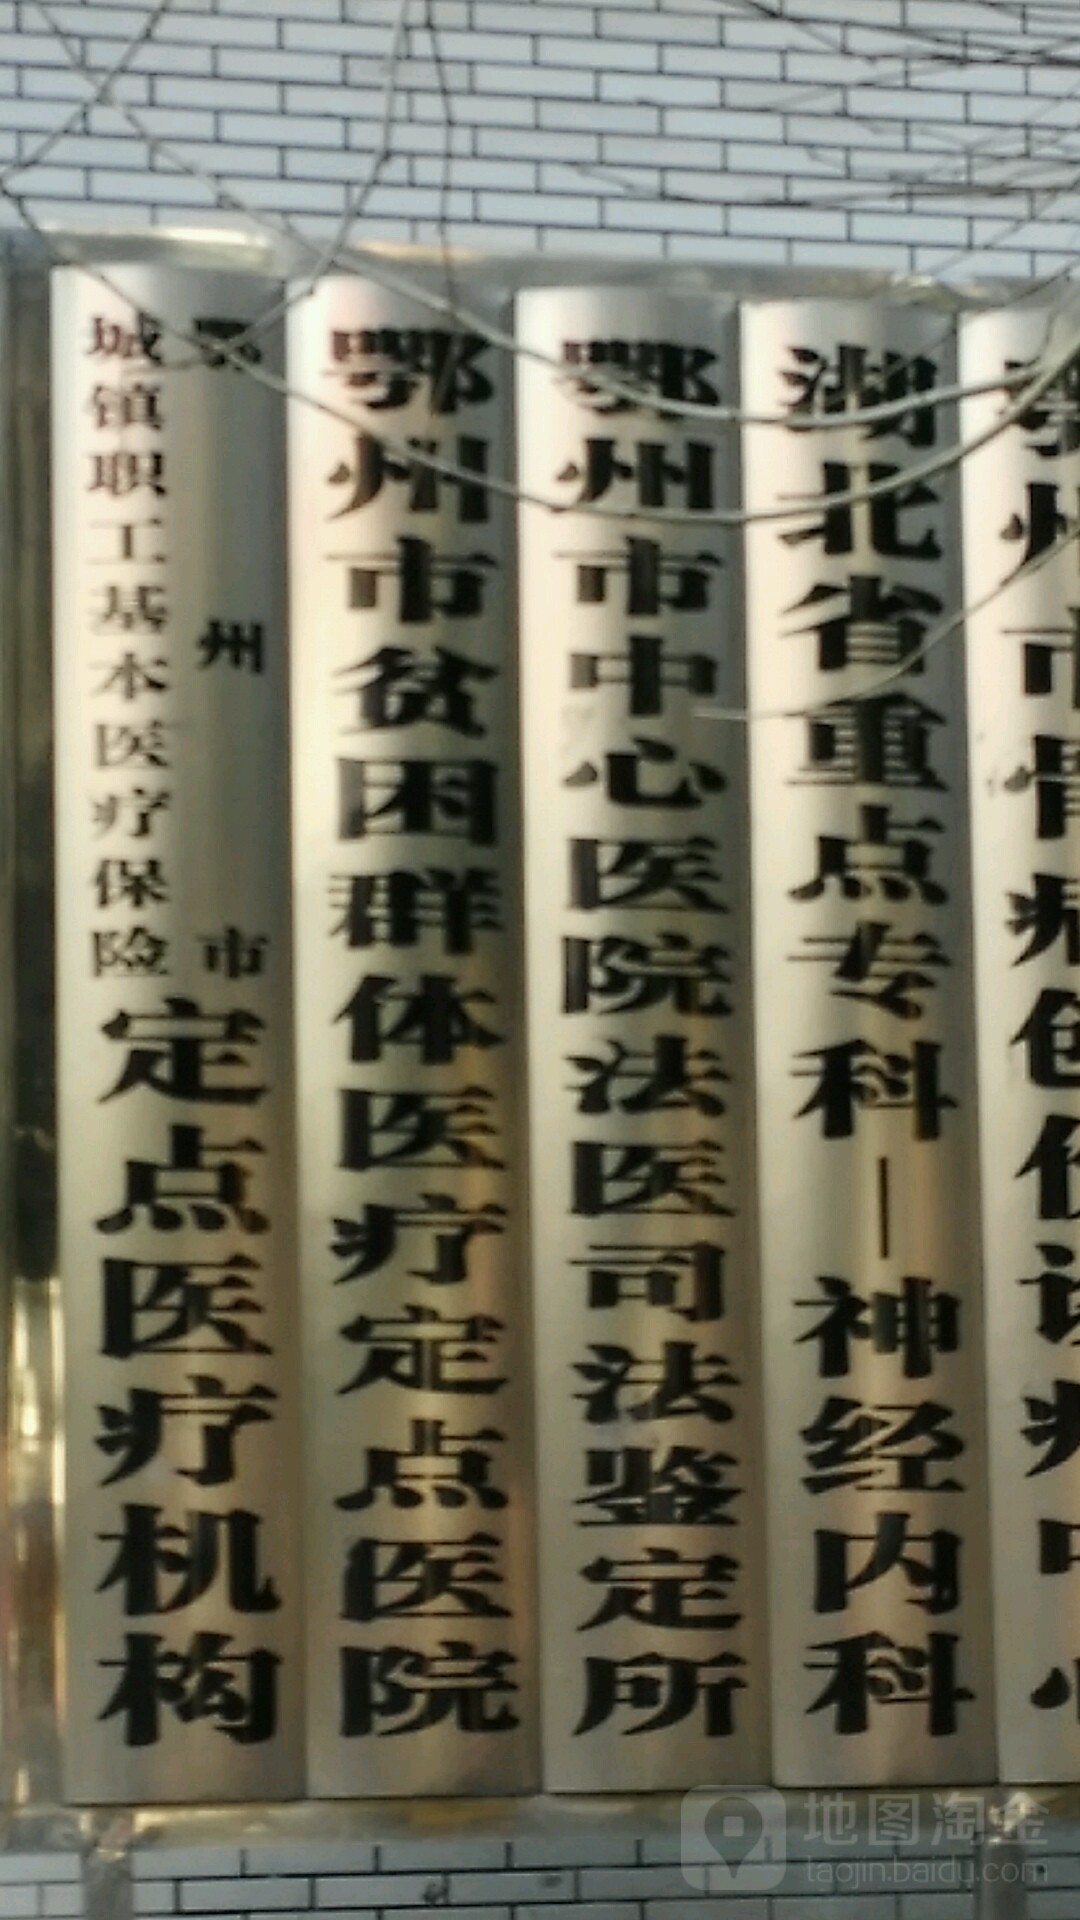 鄂州市
城镇职工基本医疗保险
定点医疗机构
鄂州市贫困群体医疗定点医院
鄂州市中心医院法医司法鉴定所
湖北省重点专科—神经内科
鄂州市骨病创伤诊疗中心
地图淘金
taojin.baidu.com